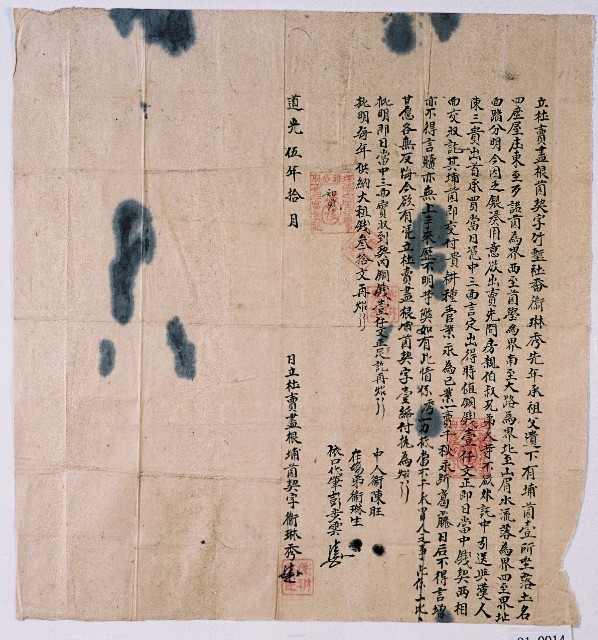 立杜賣盡根園契字竹塹社番衛琳秀先年承祖父遺下有埔園壹所坐落土名
四座屋庄東至乃諾園為界西至園墾為界南至大路為界北至山眉水流落為界四至界址
面踏分明今因乏銀湊用意欲出賣先問房親伯叔兄弟人等不欲外託中引送與漢人
陳三貴出首承買當日憑中三面言定出得時值銅錢壹仟文正即日當中錢契兩相
両交收訖其埔園即交付貴耕種管業永為己業一賣千秋永斷葛藤日后不得言增
亦不得言贖亦無上手來歷不明等獘如有此情係秀一力抵當不干承買人之事此係
甘愿各無反悔今欲有憑立杜賣盡根埔園契字壹紙付執為炤
批明即日當中三面實收到契內銅錢壹仟文正足訖再炤
批明每年供納大租錢叁拾文再炤
中人衛陳旺
在場弟衛琳生
依口代筆彭步雲
道光伍年拾月 日立杜賣盡根埔園契字衛琳秀
91-0014